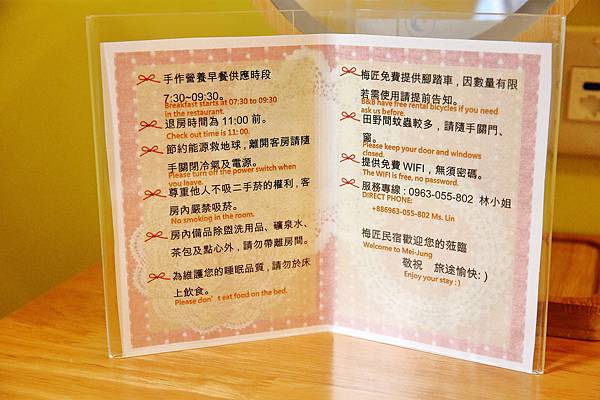 手作營養早餐供應時段
7:30~09:30。
Breakfast starts at 07:30 to 09:30
in the restaurant.
退房時間為 11:00 前。
Check out time is 11: 00.
節約能源救地球，離開客房請隨
手關閉冷氣及電源。
Please turn off the power switch when
you leave.
尊重他人不吸二手菸的權利，客
房內嚴禁吸菸。
No smoking in the room.
房內備品除盥洗用品、礦泉水、
茶包及點心外，請勿帶離房間。
為維護您的睡眠品質，請勿於床
上飲食。
Please don’t eat food on the bed.
梅匠免費提供腳踏車，因數量有限
若需使用請提前告知。
B&B have free rental bicycles if you need
ask us before.
田野間蚊蟲較多，請隨手關門、
窗。
Please keep your door and windows
closed.
提供免費 WIFI，無須密碼。
The WIFI is free, no password.
服務專線：0963-055-802 林小姐
DIRECT PHONE:
+886963-055-802 Ms. Lin
梅匠民宿歡迎您的蒞臨
Welcome to Mei-Jung
敬祝 旅途愉快:)
Enjoy your stay :)